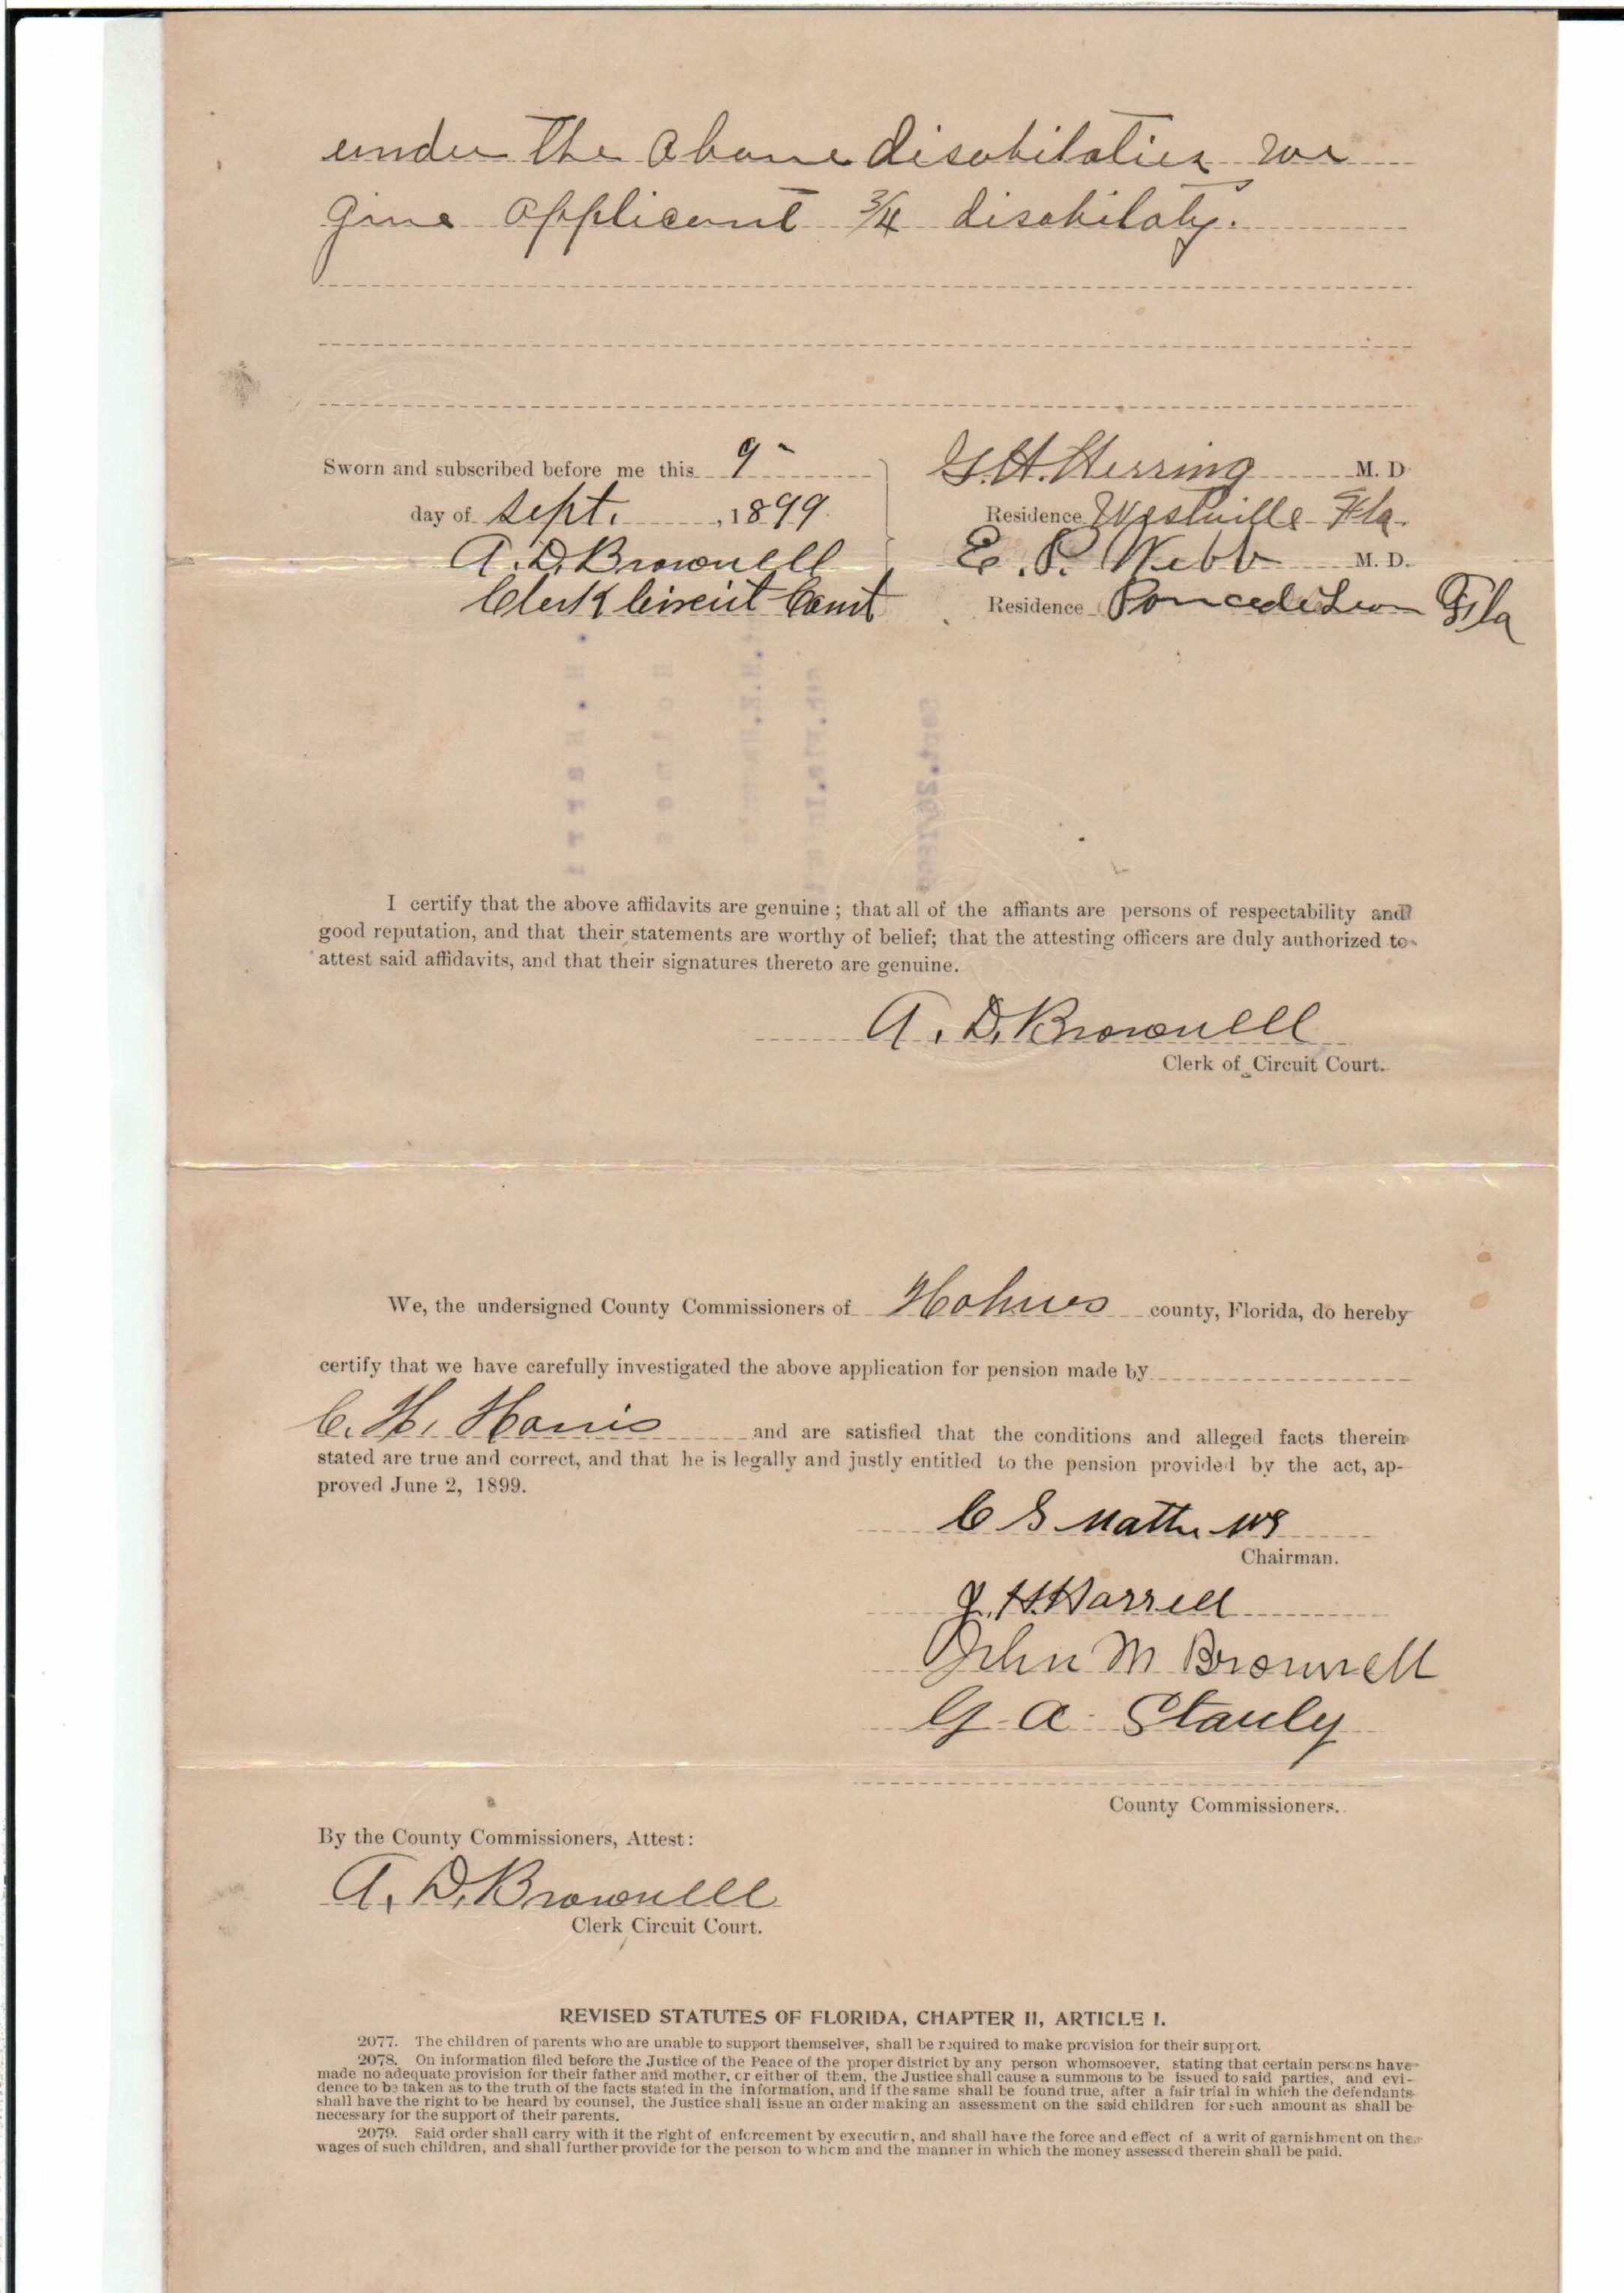 under the above disabilaties we
give applicant 3/4 disabilaty.
Sworn and subscribed before me this 9
day of Sept., 1899.
A. D. Brownell
Clerk Circuit Court
G. H. Herring M. D.
Residence Westville Fla.
E. P. Webb M. D.
Residence Ponce de Leon Fla
I certify that the above affidavits are genuine; that all of the affiants are persons of respectability and
good reputation, and that their statements are worthy of belief; that the attesting officers are duly authorized to
attest said affidavits, and that their signatures thereto are genuine.
A. D. Brownell
Clerk of Circuit Court.
We, the undersigned County Commissioners of Holmes county, Florida, do hereby
certify that we have carefully investigated the above application for pension made by
C. H. Harris and are satisfied that the conditions and alleged facts therein
stated are true and correct, and that he is legally and justly entitled to the pension provided by the act, ap-
proved June 2, 1899.
C S Matthews
Chairman.
J. H. Harrell
John M Brownell
G A Stanly
County Commissioners.
By the County Commissioners, Attest:
A. D. Brownell
Clerk Circuit Court.
REVISED STATUTES OF FLORIDA, CHAPTER II, ARTICLE I.
2077. The children of parents who are unable to support themselves, shall be required to make provision for their support.
2078. On information filed before the Justice of the Peace of the proper district by any person whomsoever, stating that certain persons have
made no adequate provision for their father and mother, or either of them, the Justice shall cause a summons to be issued to said parties, and evi-
dence to be taken as to the truth of the facts stated in the information, and if the same shall be found true, after a fair trial in which the defendants
shall have the right to be heard by counsel, the Justice shall issue an order making an assessment on the said children for such amount as shall be
necessary for the support of their parents.
2079. Said order shall carry with it the right of enforcement by execution, and shall have the force and effect of a writ of garnishment on the
wages of such children, and shall further provide for the person to whom and the manner in which the money assessed therein shall be paid.